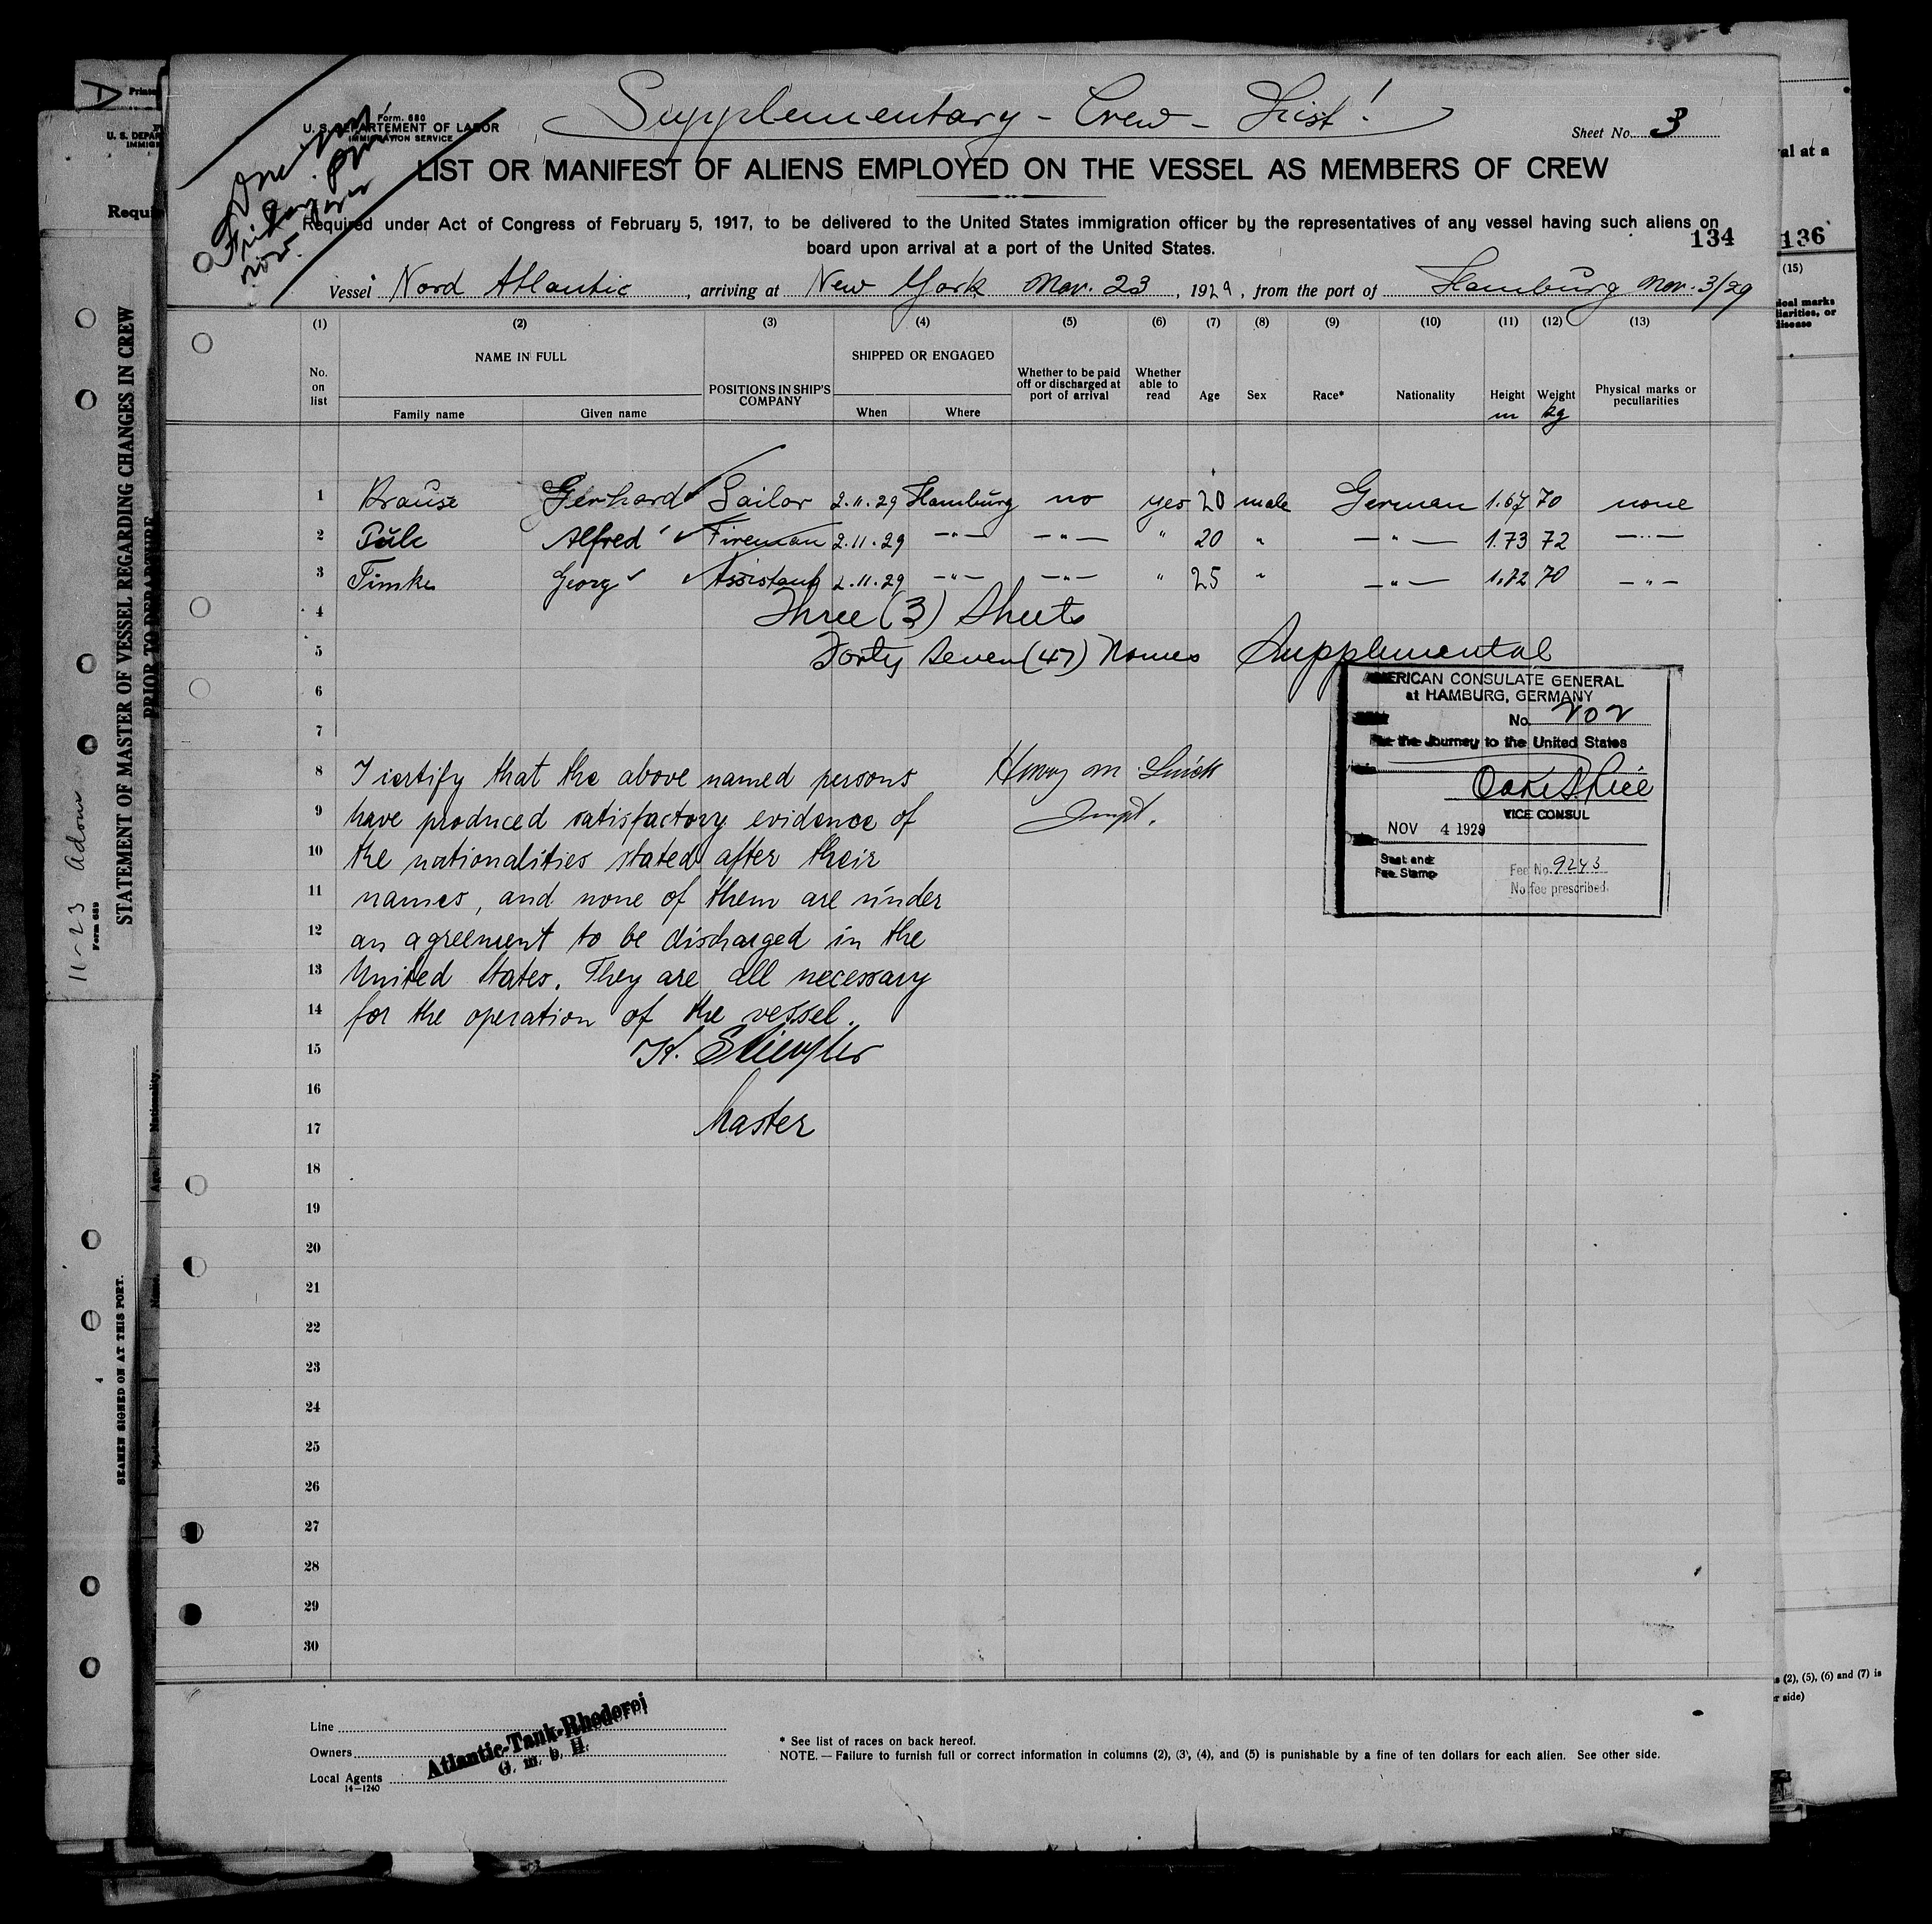 Supplementary - Crew - List!
Form. 680
U. S. DEPARTEMENT OF LABOR
IMMIGRATION SERVICE
Sheet No. 3
LIST OR MANIFEST OF ALIENS EMPLOYED ON THE VESSEL AS MEMBERS OF CREW
Required under Act of Congress of February 5, 1917, to be delivered to the United States immigration officer by the representatives of any vessel having such aliens on
board upon arrival at a port of the United States.
134
Vessel Nord Atlantic, arriving at New York Nov. 23, 1929, from the port of Hamburg Nov. 3/29
(1) (2) (3) (4) (5) (6) (7) (8) (9) (10) (11) (12) (13)
No. on list NAME IN FULL Family name Given name POSITIONS IN SHIP'S COMPANY SHIPPED OR ENGAGED When Where Whether to be paid off or discharged at port of arrival Whether able to read Age Sex Race* Nationality Height m Weight kg Physical marks or peculiarities
1 Krause Gerhard Sailor 2.11.29 Hamburg no yes 20 male German 1.67 70 none
2 Alfred Fireman 2.11.29 —"— —"— " 20 " —"— 1.73 72 —"—
3 Timke Georg Assistant 2.11.29 —"— —"— " 25 " —"— 1.72 70 —"—
4 Three (3) Sheets
5 Forty Seven (47) Names Supplemental
6
7
8 I certify that the above named persons
9 have produced satisfactory evidence of
10 the nationalities stated after their
11 names, and none of them are under
12 an agreement to be discharged in the
13 United States. They are all necessary
14 for the operation of the vessel.
15
16
17 Master
18
19
20
21
22
23
24
25
26
27
28
29
30
Henry M.
Inspt.
AMERICAN CONSULATE GENERAL
at HAMBURG, GERMANY
No. 202
For the Journey to the United States
VICE CONSUL
NOV 4 1929
Seal and
Fee Stamp
Fee No. 9243
No fee prescribed.
Line
Owners
Local Agents
14—1240
Atlantic-Tank-Rhederei
G. m. b. H.
* See list of races on back hereof.
NOTE. — Failure to furnish full or correct information in columns (2), (3), (4), and (5) is punishable by a fine of ten dollars for each alien. See other side.
STATEMENT OF MASTER OF VESSEL REGARDING CHANGES IN CREW
PRIOR TO DEPARTURE
Form 689
11-23
SEAMEN SIGNED ON AT THIS PORT.
U. S. DEPAR
Requir
al at a
136
(15)
s (2), (5), (6) and (7) is
r side)